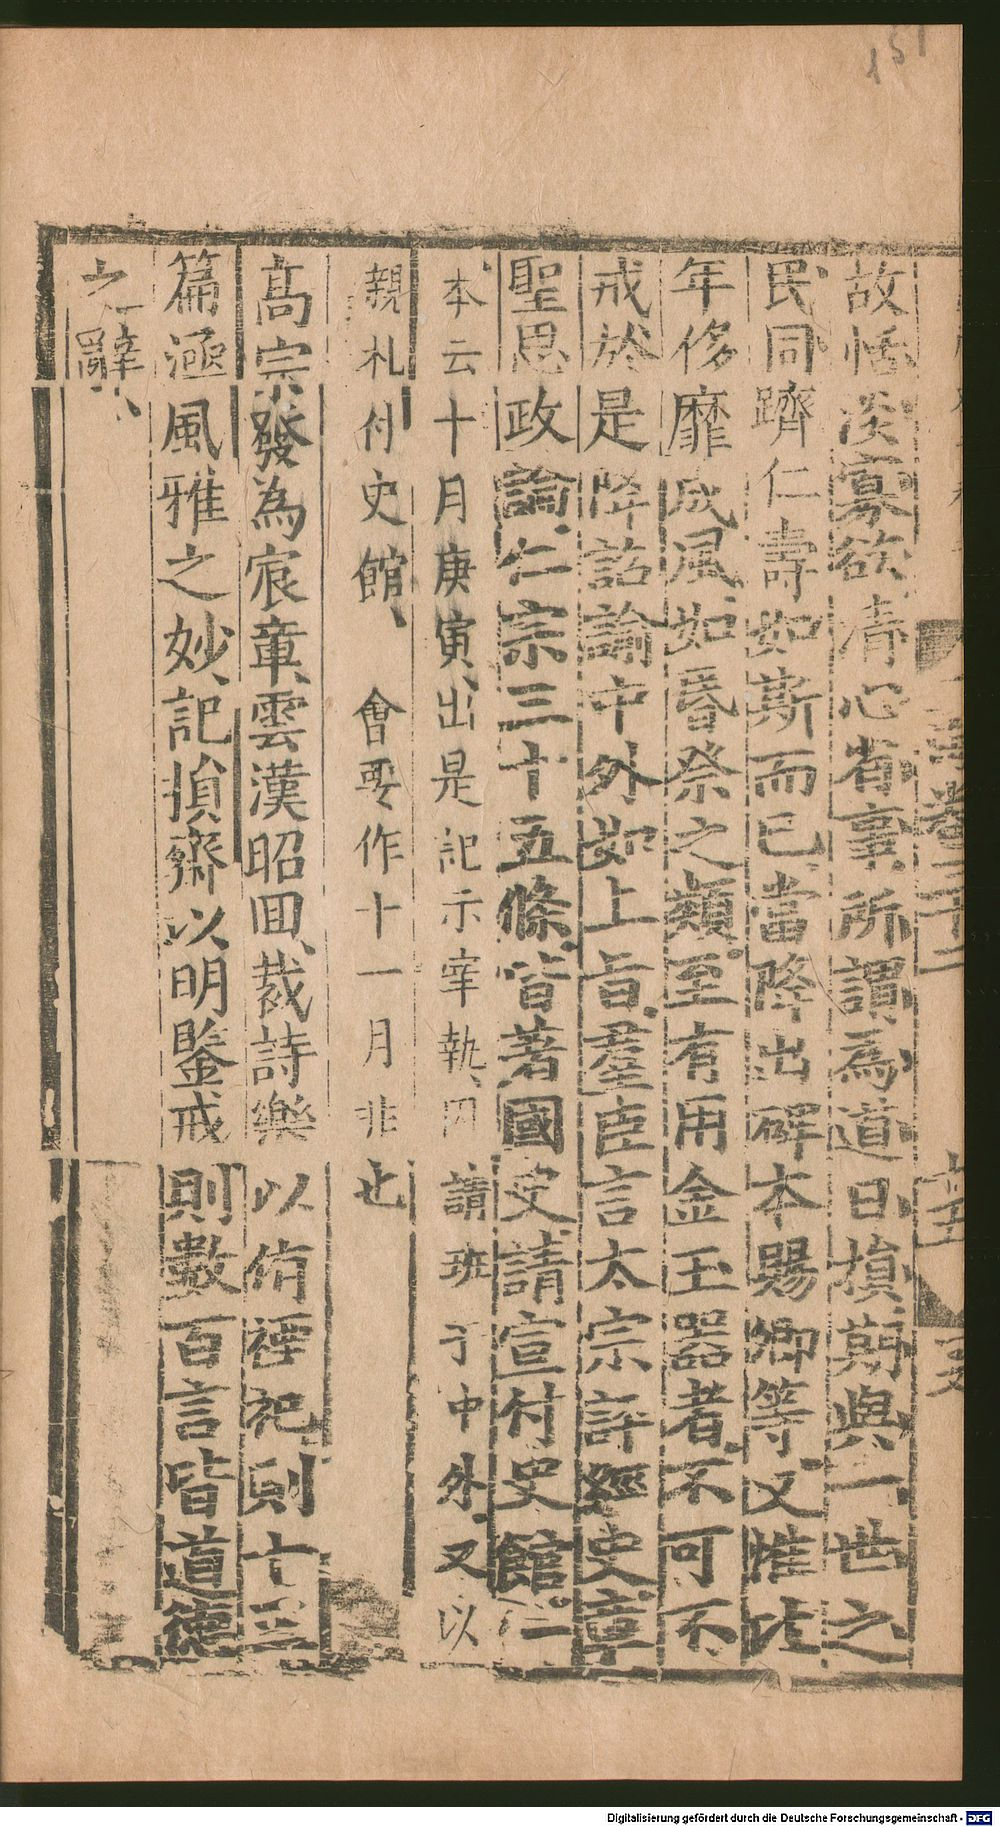 151
故恬淡寡欲清心省事所謂為道日損期與一世之
民同躋仁壽如斯而已當降出碑本賜卿等又惟比
年侈靡成風如昏祭之類至有用金玉器者不可不
戒於是降詔諭中外如上旨羣臣言太宗評經史章
聖思政論仁宗三十五條皆著國史請宣付史館二
本云十月庚寅出是記示宰執因請班于中外又以
親札付史館 會要作十一月非也
高宗發為宸章雲漢昭回裁詩樂以侑禋祀則十三
篇涵風雅之妙記損齋以明鑒戒則數百言皆道德
之辭
Digitalisierung gefördert durch die Deutsche Forschungsgemeinschaft - DFG